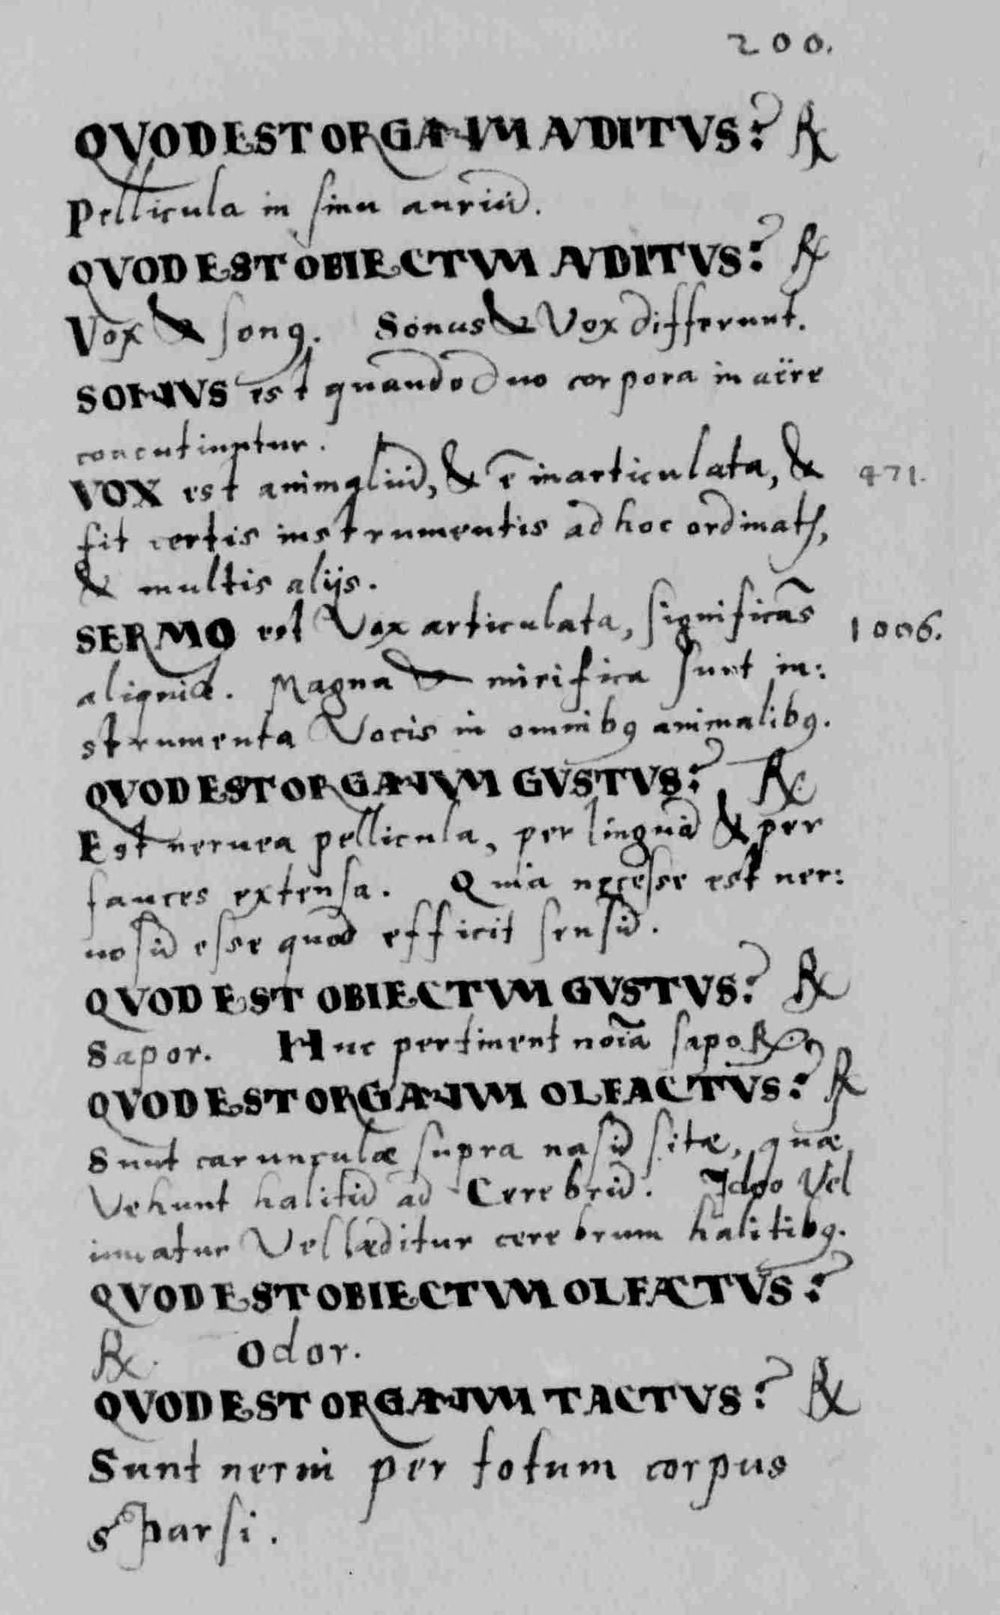 200.
QVOD EST ORGANVM AVDITVS? ℞
Pellicula in sinu auriũ.
QVOD EST OBIECTVM AVDITVS? ℞
Vox & sonꝰ. Sonus & Vox differunt.
SONVS est quando duo corpora in aëre
concutiuntur.
VOX est animaliũ, & ẽ inarticulata, & 471.
fit certis instrumentis ad hoc ordinatꝭ,
& multis alijs.
SERMO est Vox articulata, significãs 1006.
aliquid. Magna & mirifica sunt in:
strumenta Vocis in omnibꝰ animalibꝰ.
QVOD EST ORGANVM GVSTVS? ℞
Est neruea pellicula, per linguã & per
fauces extensa. Quia necesse est ner:
uosũ esse quod efficit sensũ.
QVOD EST OBIECTVM GVSTVS? ℞
Sapor. Huc pertinent noĩa sapoꝝ
QVOD EST ORGANVM OLFACTVS? ℞
Sunt carunculæ supra nasũ sitæ, quæ
Vehunt halitũ ad Cerebrũ. Ideo Vel
iuuatur Vel læditur cerebrum halitibꝰ.
QVOD EST OBIECTVM OLFACTVS?
℞. Odor.
QVOD EST ORGANVM TACTVS? ℞
Sunt nerui per totum corpus
sparsi.